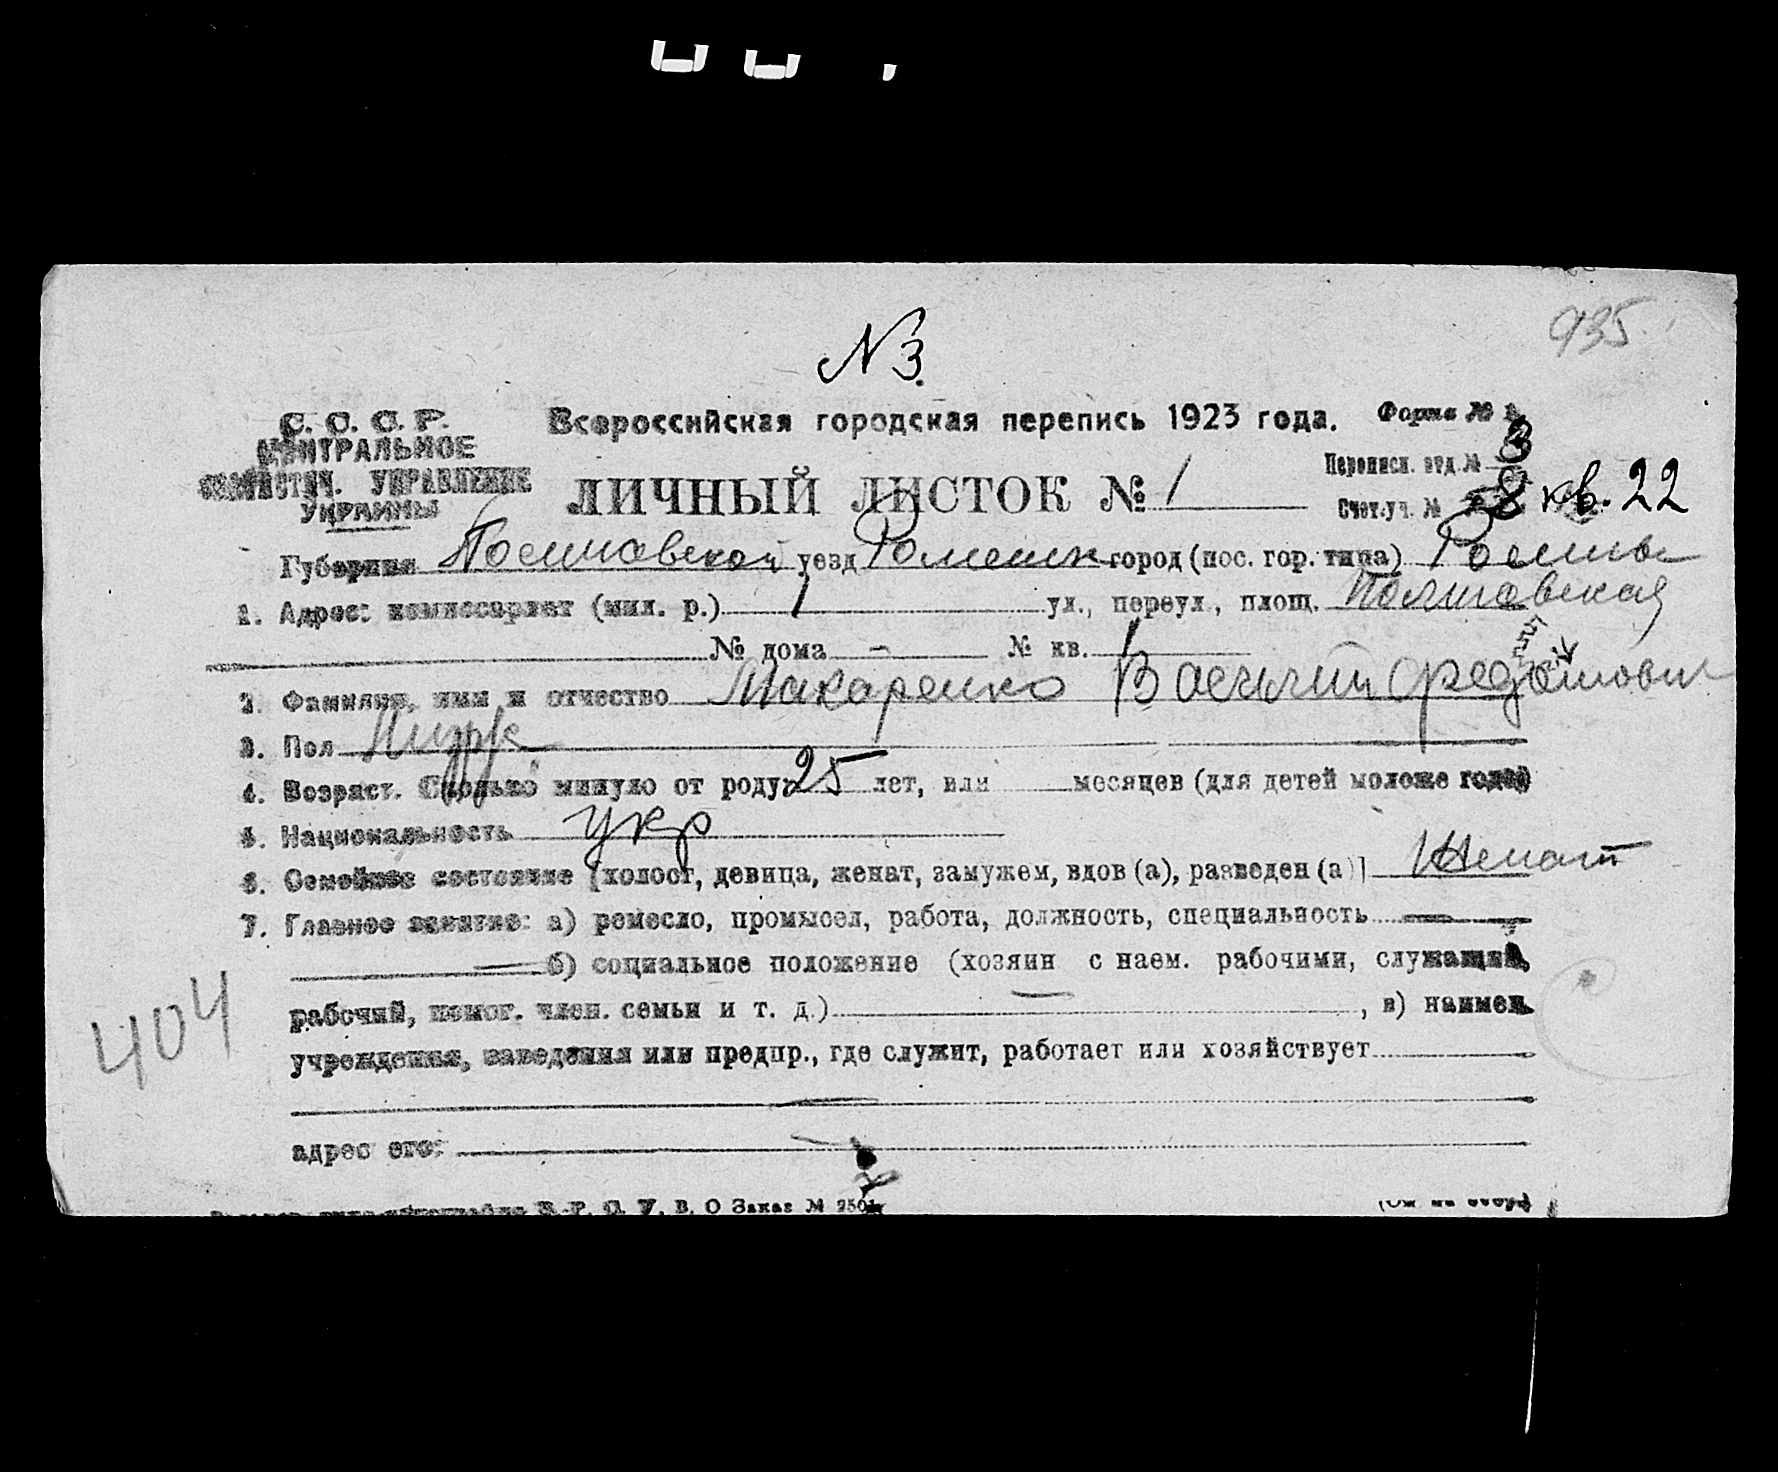 935
N 3.
С. С. С. Р. Всероссийская городская перепись 1923 года. Форма №
ЦЕНТРАЛЬНОЕ
Переписн. отд. № 3
СТАТИСТИЧ. УПРАВЛЕНИЕ ЛИЧНЫЙ ЛИСТОК № 1
УКРАИНЫ Счет. уч. № 8 кв. 22
Губерния Полтавской уезд Роменск город (пос. гор. типа) Ромны
1. Адрес: комиссариат (мил. р.) 1 ул., переул., площ. Полтавская
№ дома - № кв. 1
2. Фамилия, имя и отчество Макаренко Василий
3. Пол Мужс
4. Возраст. Сколько минуло от роду? 25 лет, или месяцев (для детей моложе года)
5. Национальность укр
6. Семейное состояние [холост, девица, женат, замужем, вдов (а), разведен (а)] Женат
7. Главное занятие: а) ремесло, промысел, работа, должность, специальность —
— б) социальное положение (хозяин с наем. рабочими, служащий,
рабочий, помог. член. семьи и т. д.) — , в) наимен.
учреждения, заведения или предпр., где служит, работает или хозяйствует
—
адрес его: —
404
В. О Заказ № 250